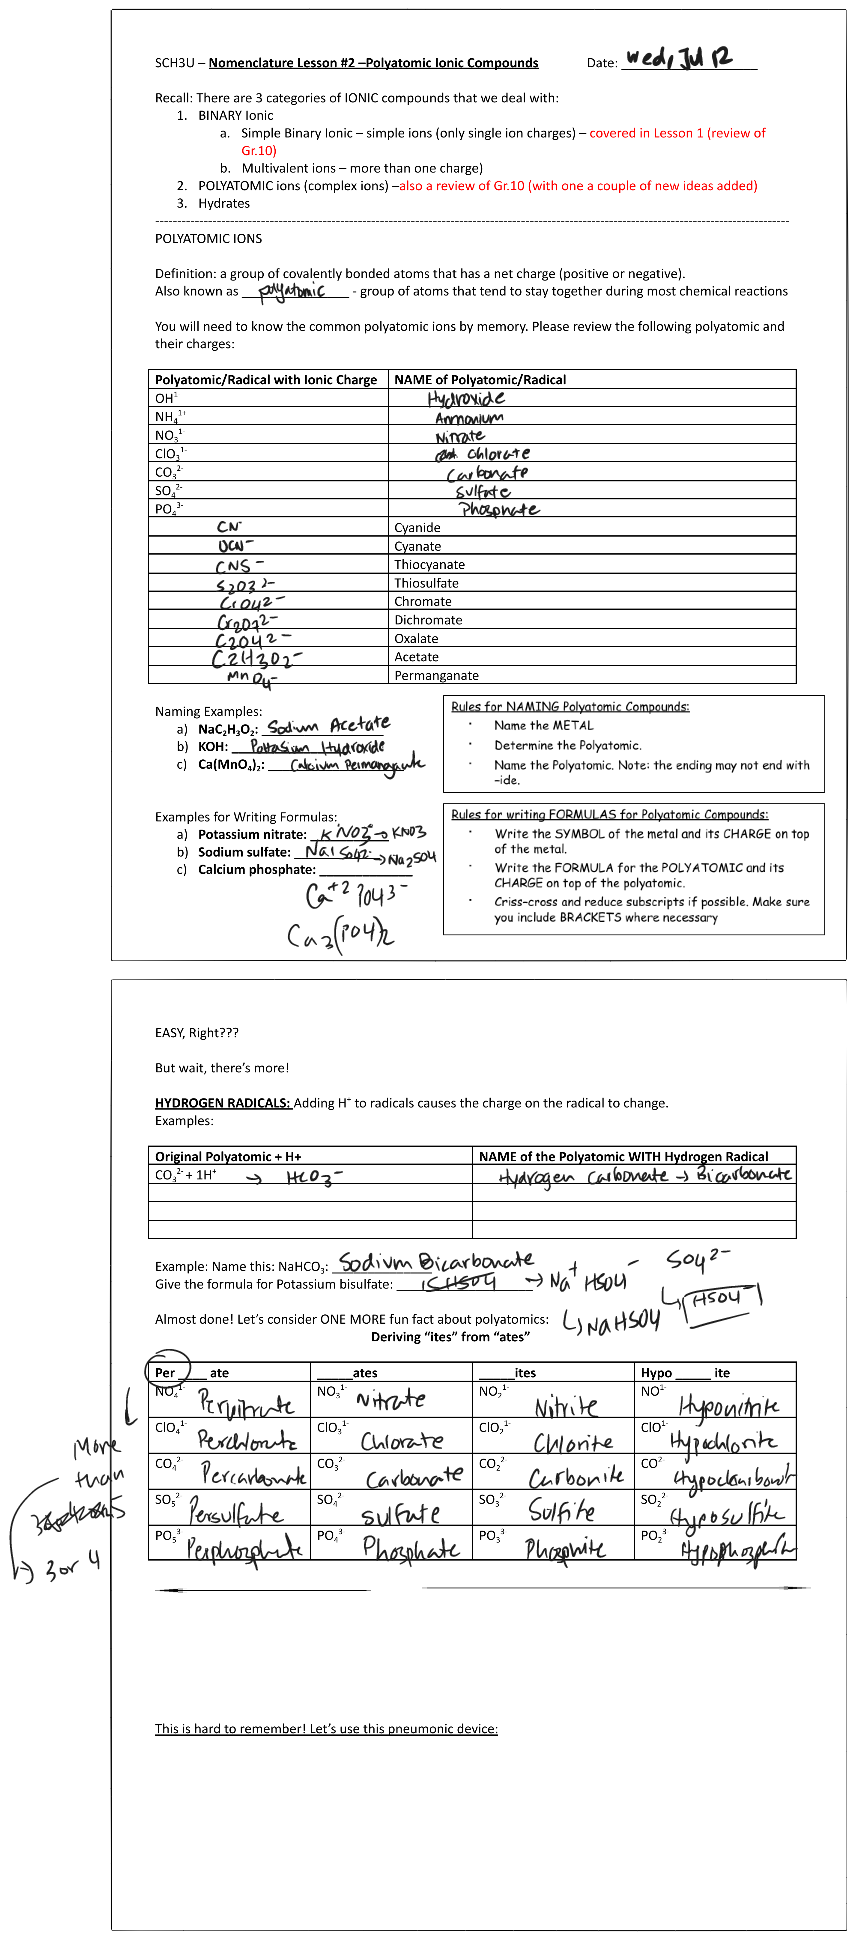 SCH3U – Nomenclature Lesson #2 –Polyatomic Ionic Compounds Date: Wed, Jul 12
Recall: There are 3 categories of IONIC compounds that we deal with:
1. BINARY Ionic
a. Simple Binary Ionic – simple ions (only single ion charges) – covered in Lesson 1 (review of
Gr.10)
b. Multivalent ions – more than one charge)
2. POLYATOMIC ions (complex ions) –also a review of Gr.10 (with one a couple of new ideas added)
3. Hydrates
POLYATOMIC IONS
Definition: a group of covalently bonded atoms that has a net charge (positive or negative).
Also known as polyatomic - group of atoms that tend to stay together during most chemical reactions
You will need to know the common polyatomic ions by memory. Please review the following polyatomic and
their charges:
Polyatomic/Radical with Ionic Charge NAME of Polyatomic/Radical
OH¹⁻ Hydroxide
NH₄¹⁺ Ammonium
NO₃¹⁻ Nitrate
ClO₃¹⁻ Chlorate
CO₃²⁻ Carbonate
SO₄²⁻ Sulfate
PO₄³⁻ Phosphate
CN⁻ Cyanide
OCN⁻ Cyanate
CNS⁻ Thiocyanate
S2O3²⁻ Thiosulfate
CrO4²⁻ Chromate
Cr2O7²⁻ Dichromate
C2O4²⁻ Oxalate
C2H3O2⁻ Acetate
MnO4⁻ Permanganate
Naming Examples:
a) NaC₂H₃O₂: Sodium Acetate
b) KOH: Pottasium Hydroxide
c) Ca(MnO₄)₂: Calcium Permanganate
Rules for NAMING Polyatomic Compounds:
· Name the METAL
· Determine the Polyatomic.
· Name the Polyatomic. Note: the ending may not end with
–ide.
Examples for Writing Formulas:
a) Potassium nitrate: K NO3 → KNO3
b) Sodium sulfate: Na1 SO42- → Na2SO4
c) Calcium phosphate:
Ca⁺² PO4 3⁻
Ca3(PO4)2
Rules for writing FORMULAS for Polyatomic Compounds:
· Write the SYMBOL of the metal and its CHARGE on top
of the metal.
· Write the FORMULA for the POLYATOMIC and its
CHARGE on top of the polyatomic.
· Criss-cross and reduce subscripts if possible. Make sure
you include BRACKETS where necessary
EASY, Right???
But wait, there's more!
HYDROGEN RADICALS: Adding H⁺ to radicals causes the charge on the radical to change.
Examples:
Original Polyatomic + H+ NAME of the Polyatomic WITH Hydrogen Radical
CO₃²⁻ + 1H⁺ → HCO3⁻ Hydrogen carbonate → Bicarbonate
Example: Name this: NaHCO₃: Sodium Bicarbonate SO4²⁻
Give the formula for Potassium bisulfate: KHSO4 → Na⁺ HSO4⁻
↳ HSO4⁻
Almost done! Let's consider ONE MORE fun fact about polyatomics: ↳ NaHSO4
Deriving "ites" from "ates"
Per ____ ate _____ates _____ites Hypo _____ ite
NO₄¹⁻ Pernitrate NO₃¹⁻ Nitrate NO₂¹⁻ Nitrite NO¹⁻ Hyponitrite
ClO₄¹⁻ Perchlorate ClO₃¹⁻ Chlorate ClO₂¹⁻ Chlorite ClO¹⁻ Hypochlorite
CO₄²⁻ Percarbonate CO₃²⁻ Carbonate CO₂²⁻ Carbonite CO²⁻
SO₅²⁻ Persulfate SO₄²⁻ Sulfate SO₃²⁻ Sulfite SO₂²⁻ Hyposulfite
PO₅³⁻ Perphosphate PO₄³⁻ Phosphate PO₃³⁻ Phosphite PO₂³⁻
More
than
→ 3 or 4
This is hard to remember! Let's use this pneumonic device: